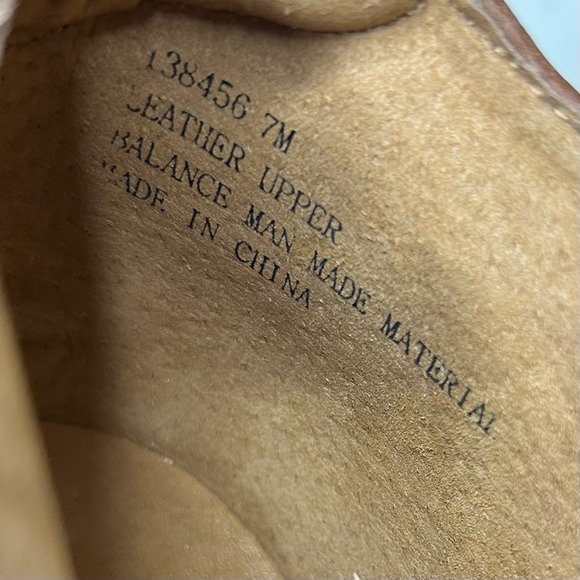 138456 7M
LEATHER UPPER
BALANCE MAN MADE MATERIAL
MADE IN CHINA